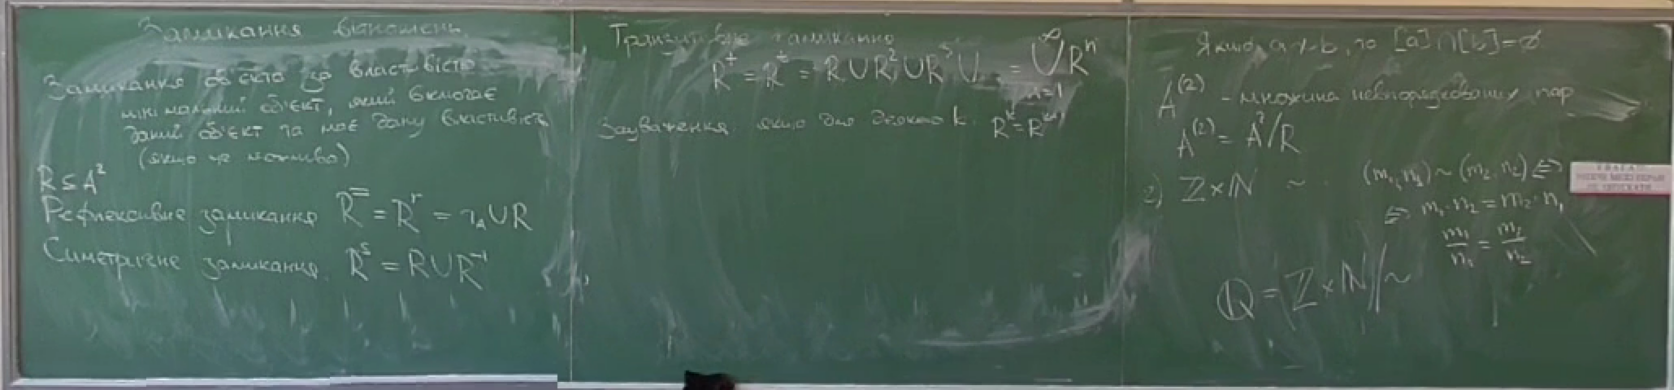 Замикання відношень.
Замикання об'єкта за властивістю
мінімальний об'єкт, який включає
даний об'єкт та має дану властивість
(якщо це можливо)
R ⊆ A²
Рефлексивне замикання R⁼ = Rʳ = i_A ∪ R
Симетричне замикання. Rˢ = R ∪ R⁻¹
Транзитивне замикання
R⁺ = Rᵗ = R ∪ R² ∪ R³ ∪ = ⋃_{n=1}^{∞} Rⁿ
Зауваження. якщо для деякого k Rᵏ = Rᵏ⁺¹
Якщо a ≁ b, то [a] ∩ [b] = ∅
A⁽²⁾ - множина невпорядкованих пар
A⁽²⁾ = A²/R
2) ℤ × ℕ ~ (m₁, n₁) ~ (m₂, n₂) ⇔
⇔ m₁ · n₂ = m₂ · n₁
m₁/n₁ = m₂/n₂
ℚ = ℤ × ℕ / ~